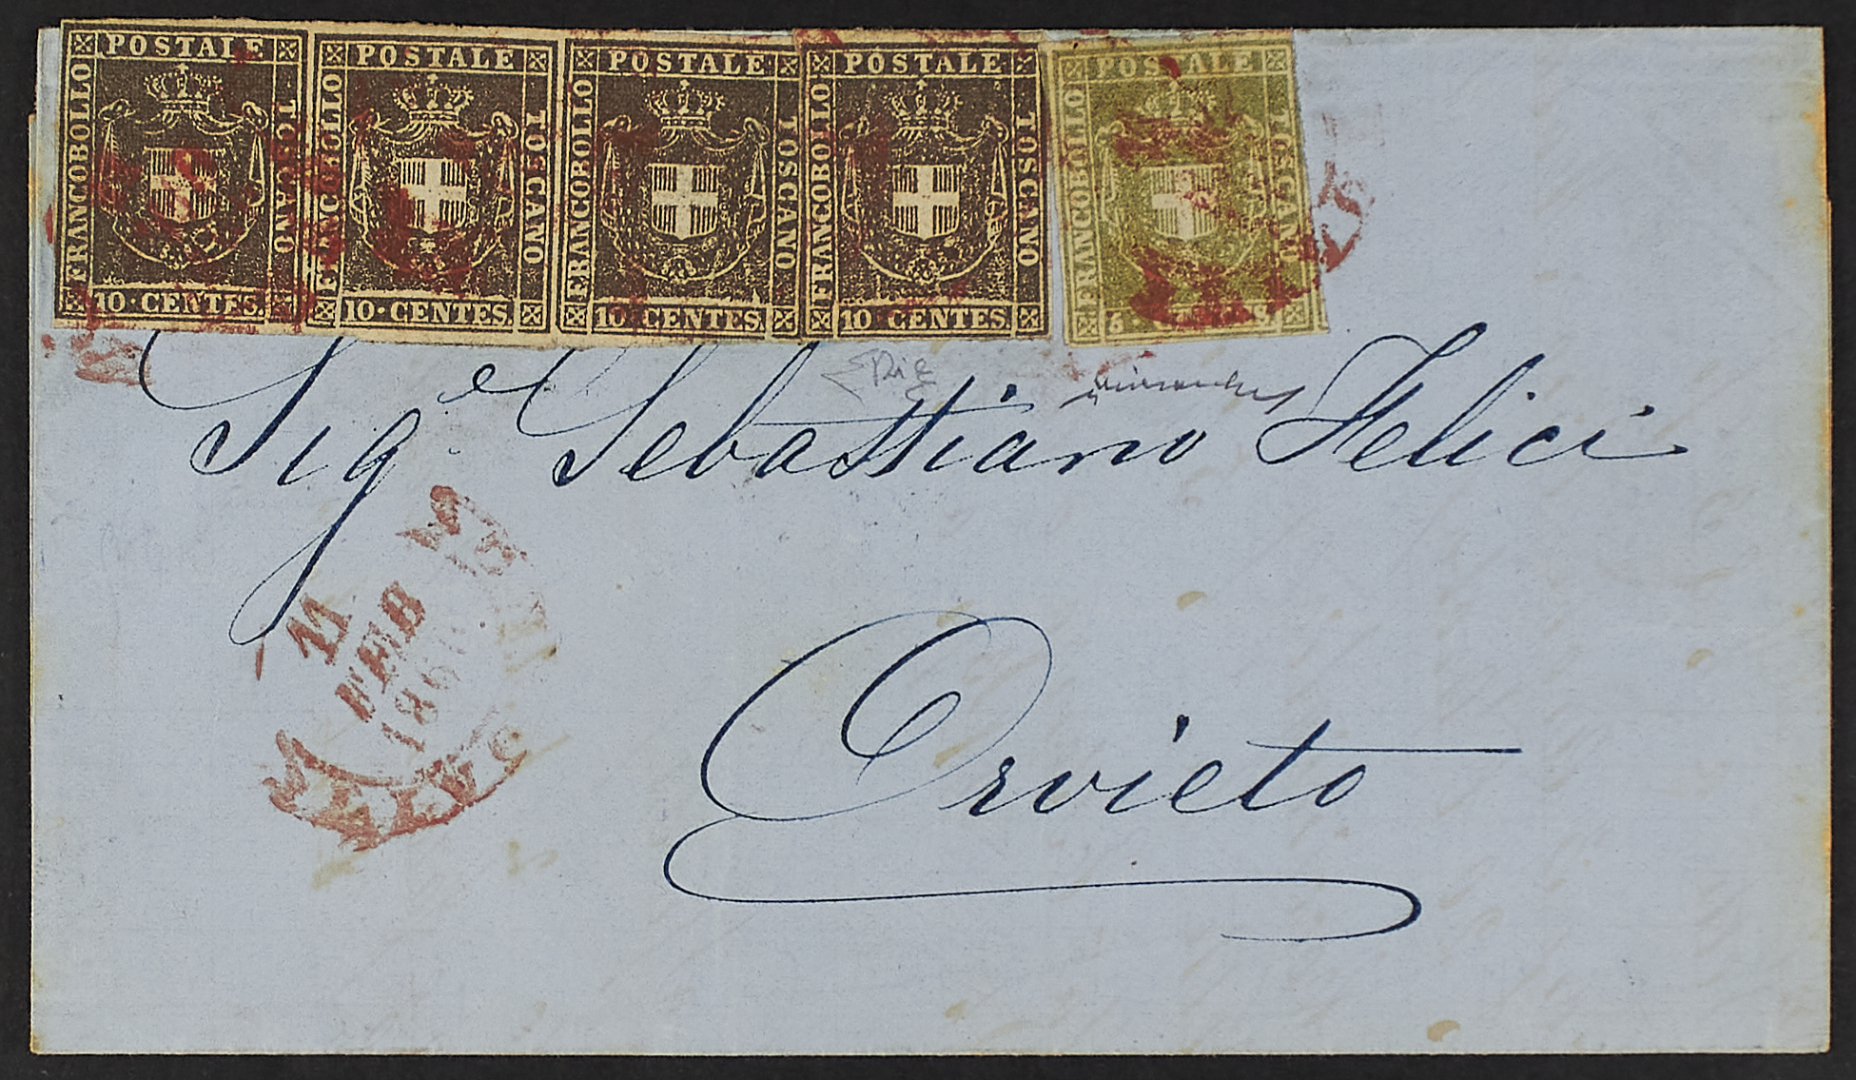 POSTALE
FRANCOBOLLO
TOSCANO
10 · CENTES.
POSTALE
FRANCOBOLLO
TOSCANO
10 · CENTES.
POSTALE
FRANCOBOLLO
TOSCANO
10 CENTES.
POSTALE
FRANCOBOLLO
TOSCANO
10 · CENTES.
POSTALE
FRANCOBOLLO
TOSCANO
5
Sig.e Sebastiano Felici
11
FEB
Orvieto